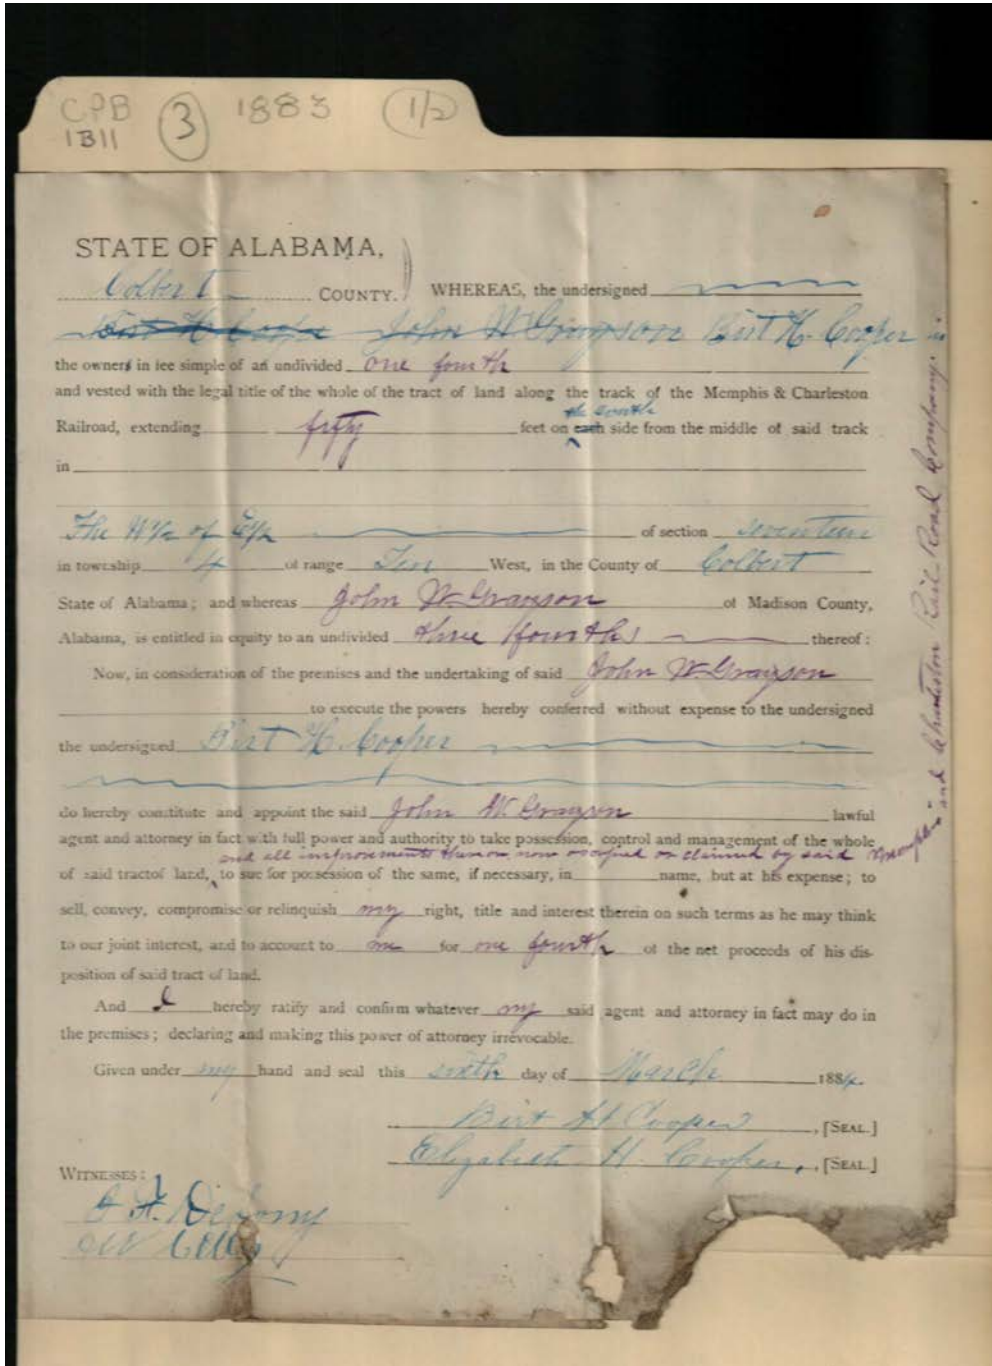 CPB
1B11
3
1883
1/2
STATE OF ALABAMA,
Colbert COUNTY. WHEREAS, the undersigned
Birt H. Cooper John W Grayson Birt H. Cooper is
the owners in fee simple of an undivided one fourth
and vested with the legal title of the whole of the tract of land along the track of the Memphis & Charleston
the south
Railroad, extending fifty feet on each side from the middle of said track
in
The W½ of E½ of section seventeen
in township 4 of range Ten West, in the County of Colbert
State of Alabama; and whereas John W Grayson of Madison County,
Alabama, is entitled in equity to an undivided three fourths thereof:
Now, in consideration of the premises and the undertaking of said John W Grayson
to execute the powers hereby conferred without expense to the undersigned
the undersigned Birt H. Cooper
do hereby constitute and appoint the said John W Grayson lawful
agent and attorney in fact with full power and authority to take possession, control and management of the whole
and all improvements thereon now occupied or claimed by said Memphis
of said tractof land, to sue for possession of the same, if necessary, in name, but at his expense; to
sell, convey, compromise or relinquish my right, title and interest therein on such terms as he may think
to our joint interest, and to account to me for one fourth of the net proceeds of his dis-
position of said tract of land.
And I hereby ratify and confirm whatever my said agent and attorney in fact may do in
the premises; declaring and making this power of attorney irrevocable.
Given under my hand and seal this sixth day of March 1884.
Birt H Cooper, [SEAL.]
Elizabeth H. Cooper, [SEAL.]
WITNESSES:
and Charleston Rail-Road Company.